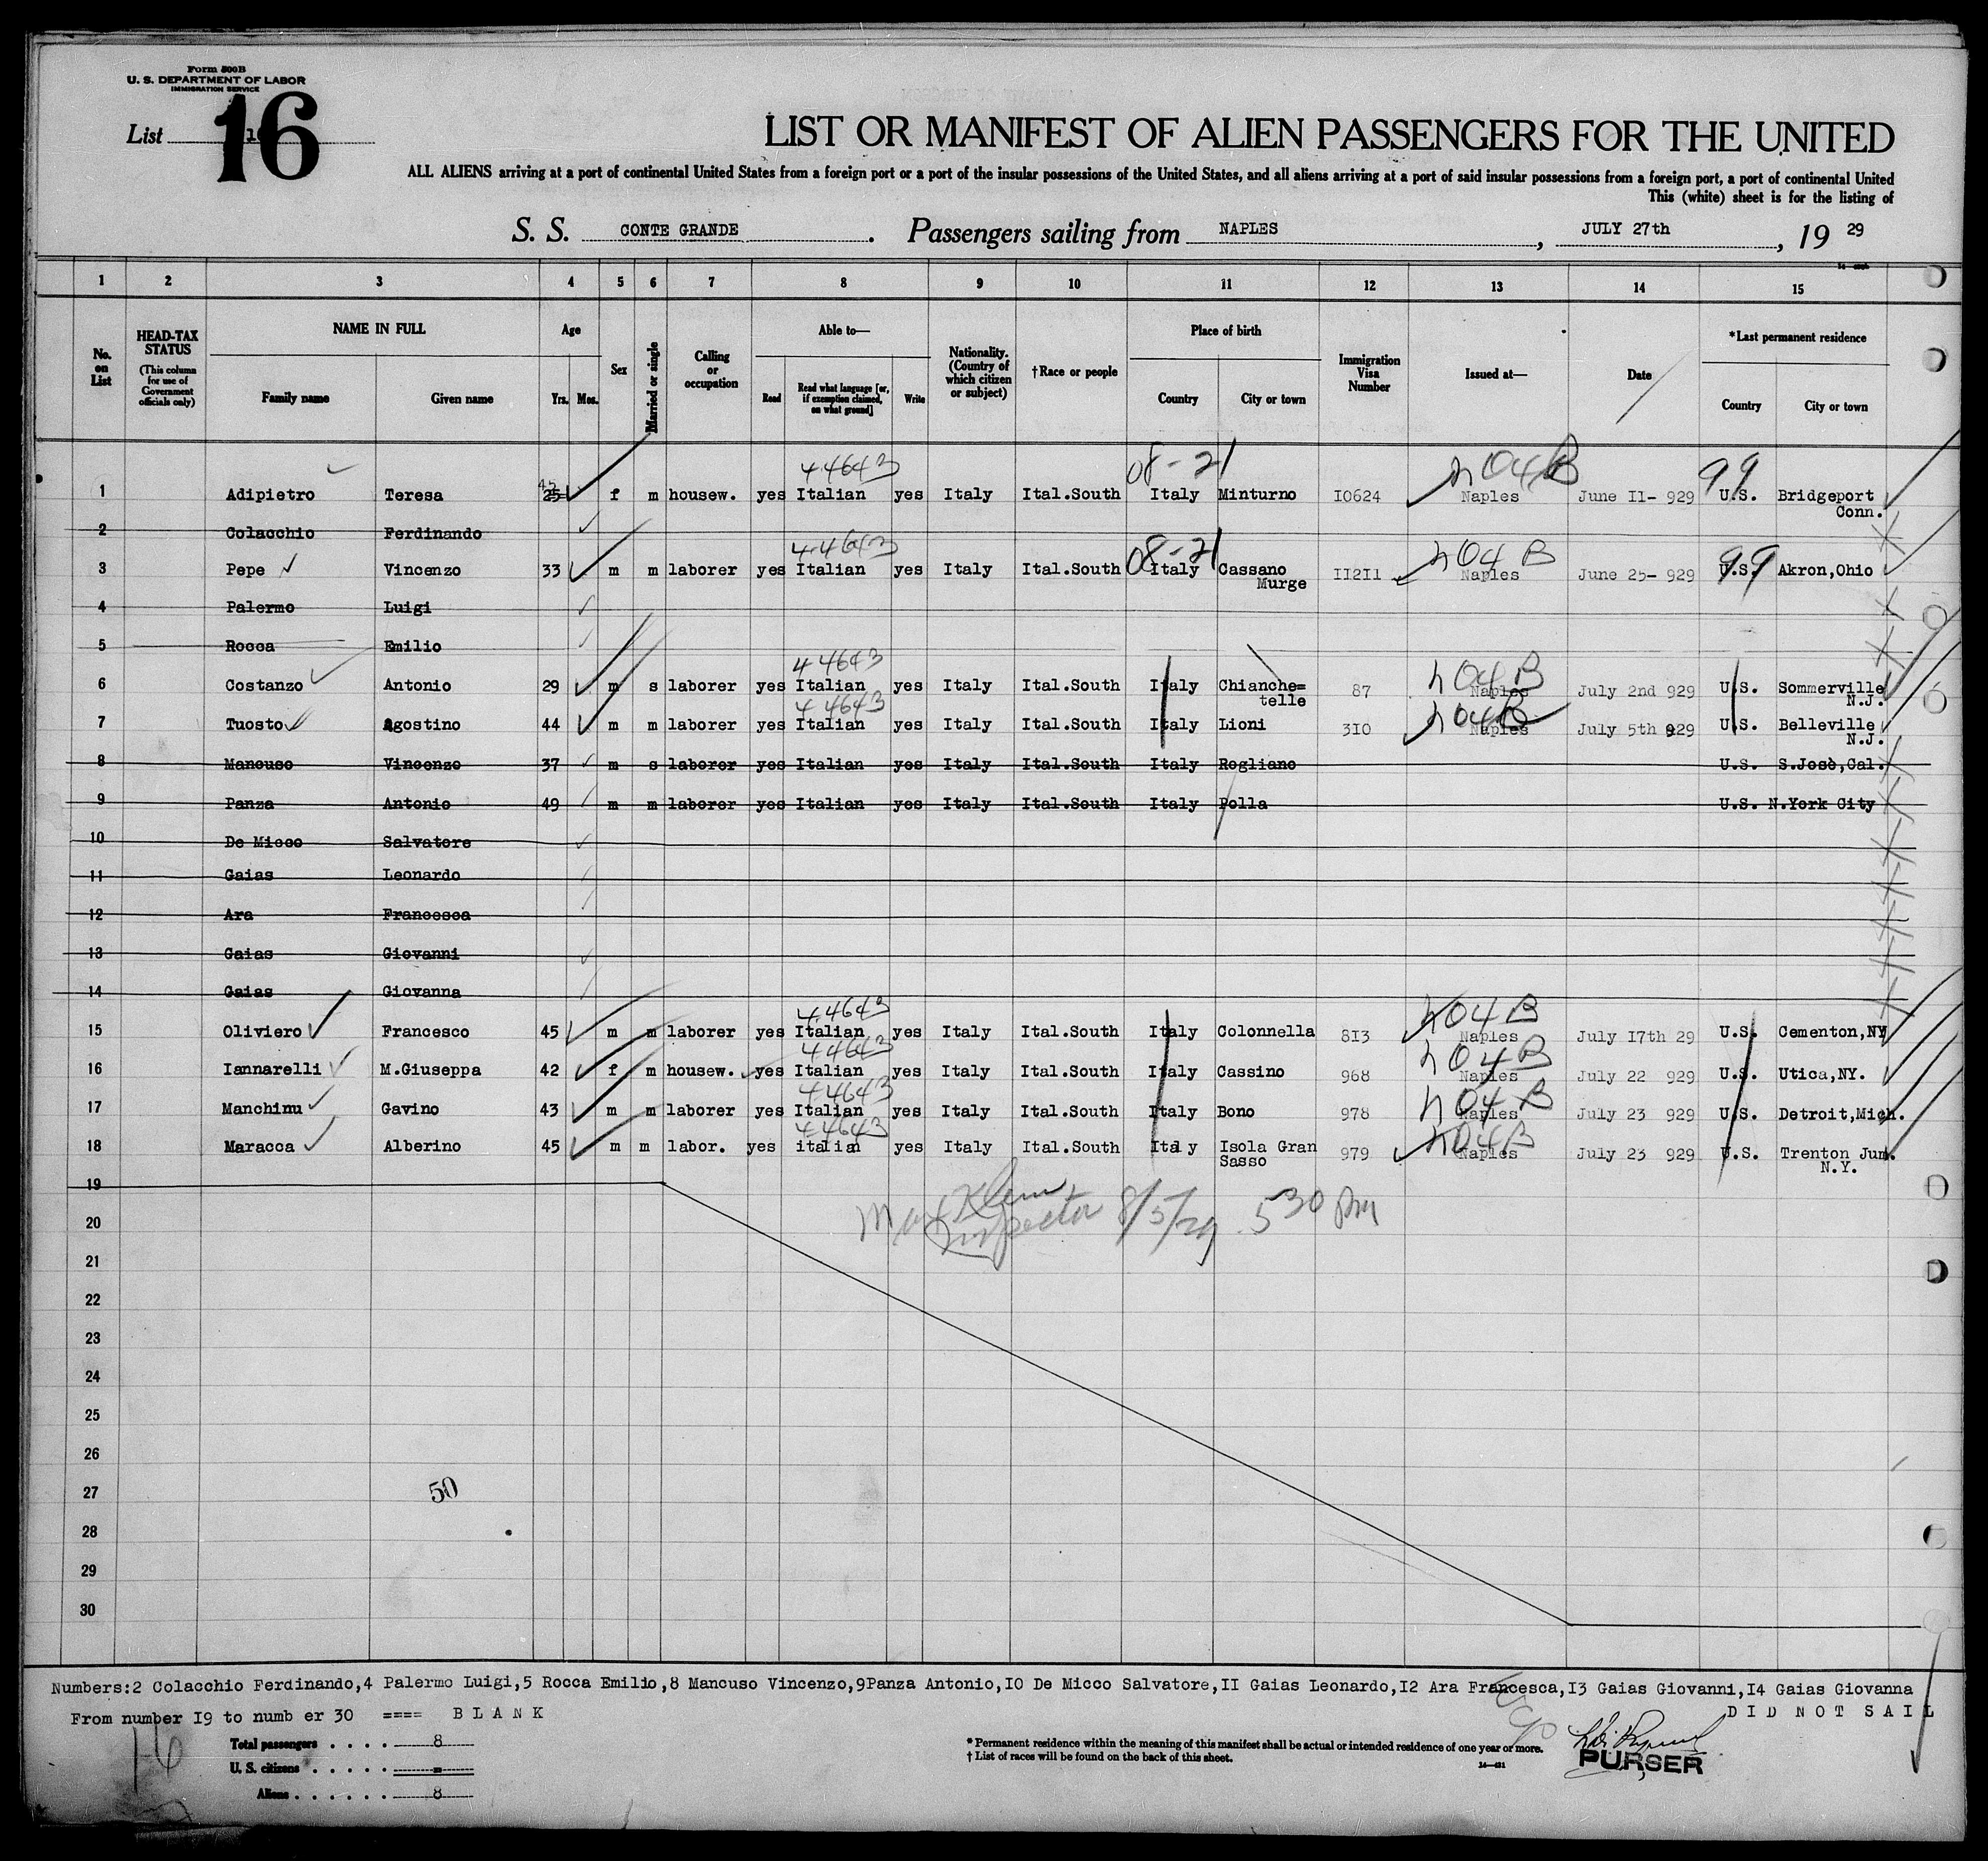 Form 500B
U. S. DEPARTMENT OF LABOR
IMMIGRATION SERVICE
List 16
LIST OR MANIFEST OF ALIEN PASSENGERS FOR THE UNITED
ALL ALIENS arriving at a port of continental United States from a foreign port or a port of the insular possessions of the United States, and all aliens arriving at a port of said insular possessions from a foreign port, a port of continental United
This (white) sheet is for the listing of
S. S. CONTE GRANDE. Passengers sailing from NAPLES, JULY 27th, 19 29
1 2 3 4 5 6 7 8 9 10 11 12 13 14 15
No. on List
HEAD-TAX STATUS (This column for use of Government officials only)
NAME IN FULL Family name Given name
Age Yrs. Mos.
Sex
Married or single
Calling or occupation
Able to— Read Read what language [or, if exemption claimed, on what ground] Write
Nationality. (Country of which citizen or subject)
†Race or people
Place of birth Country City or town
Immigration Visa Number
Issued at—
Date
*Last permanent residence Country City or town
44643 08-21 n 04B 99
1 Adipietro Teresa 25 45 f m housew. yes Italian yes Italy Ital.South Italy Minturno I0624 Naples June II- 929 U.S. Bridgeport Conn.
2 Colacchio Ferdinando
44643 08-21 n 04 B 99
3 Pepe Vincenzo 33 m m laborer yes Italian yes Italy Ital.South Italy Cassano Murge II2II Naples June 25- 929 U.S. Akron,Ohio
4 Palermo Luigi
5 Rocca Emilio
44643 n 04 B
6 Costanzo Antonio 29 m s laborer yes Italian yes Italy Ital.South Italy Chianche= telle 87 Naples July 2nd 929 U.S. Sommerville N.J.
44643 n 04B
7 Tuosto Agostino 44 m m laborer yes Italian yes Italy Ital.South Italy Lioni 3I0 Naples July 5th 929 U.S. Belleville N.J.
8 Mancuso Vincenzo 37 m s laborer yes Italian yes Italy Ital.South Italy Rogliano U.S. S.Josè,Cal.
9 Panza Antonio 49 m m laborer yes Italian yes Italy Ital.South Italy Polla U.S. N.York City
10 De Micco Salvatore
11 Gaias Leonardo
12 Ara Francesca
13 Gaias Giovanni
14 Gaias Giovanna
44643 n 04 B
15 Oliviero Francesco 45 m m laborer yes Italian yes Italy Ital.South Italy Colonnella 8I3 Naples July I7th 29 U.S. Cementon,NY
44643 n 04 B
16 Iannarelli M.Giuseppa 42 f m housew. yes Italian yes Italy Ital.South Italy Cassino 968 Naples July 22 929 U.S. Utica,NY.
44643 n 04 B
17 Manchinu Gavino 43 m m laborer yes Italian yes Italy Ital.South Italy Bono 978 Naples July 23 929 U.S. Detroit,Mich.
44643 n 04 B
18 Maracca Alberino 45 m m labor. yes italian yes Italy Ital.South Italy Isola Gran Sasso 979 Naples July 23 929 U.S. Trenton Jun. N.Y.
19
Inspector 8/5/29 5 30 PM
20
21
22
23
24
25
26
27
50
28
29
30
Numbers:2 Colacchio Ferdinando,4 Palermo Luigi,5 Rocca Emilio,8 Mancuso Vincenzo,9Panza Antonio,IO De Micco Salvatore,II Gaias Leonardo,I2 Ara Francesca,I3 Gaias Giovanni,I4 Gaias Giovanna
From number I9 to numb er 30 ==== B L A N K D I D N O T S A I L
16
Total passengers . . . . 8
U. S. citizens . . . . . =
Aliens . . . . . . 8
* Permanent residence within the meaning of this manifest shall be actual or intended residence of one year or more.
† List of races will be found on the back of this sheet.
PURSER